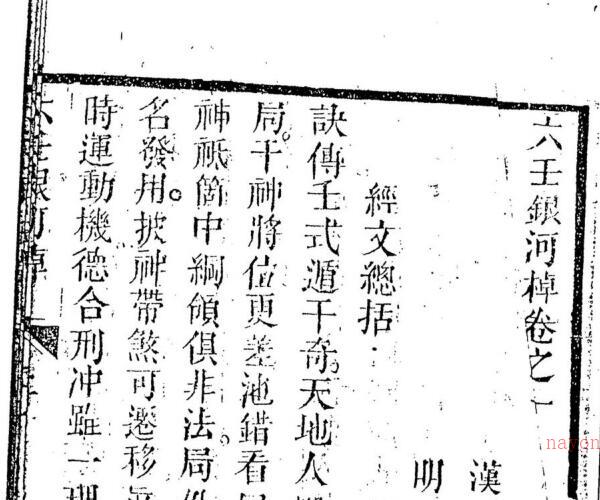 六壬銀河棹卷之一
漢
明
經文總括
訣傳壬式遁干奇天地人
局干神將位更差池錯看
神祇箇中綱領俱非法局
名發用披神帶煞可遷移
時運動機德合刑冲雖一理
六壬銀河棹
nayon